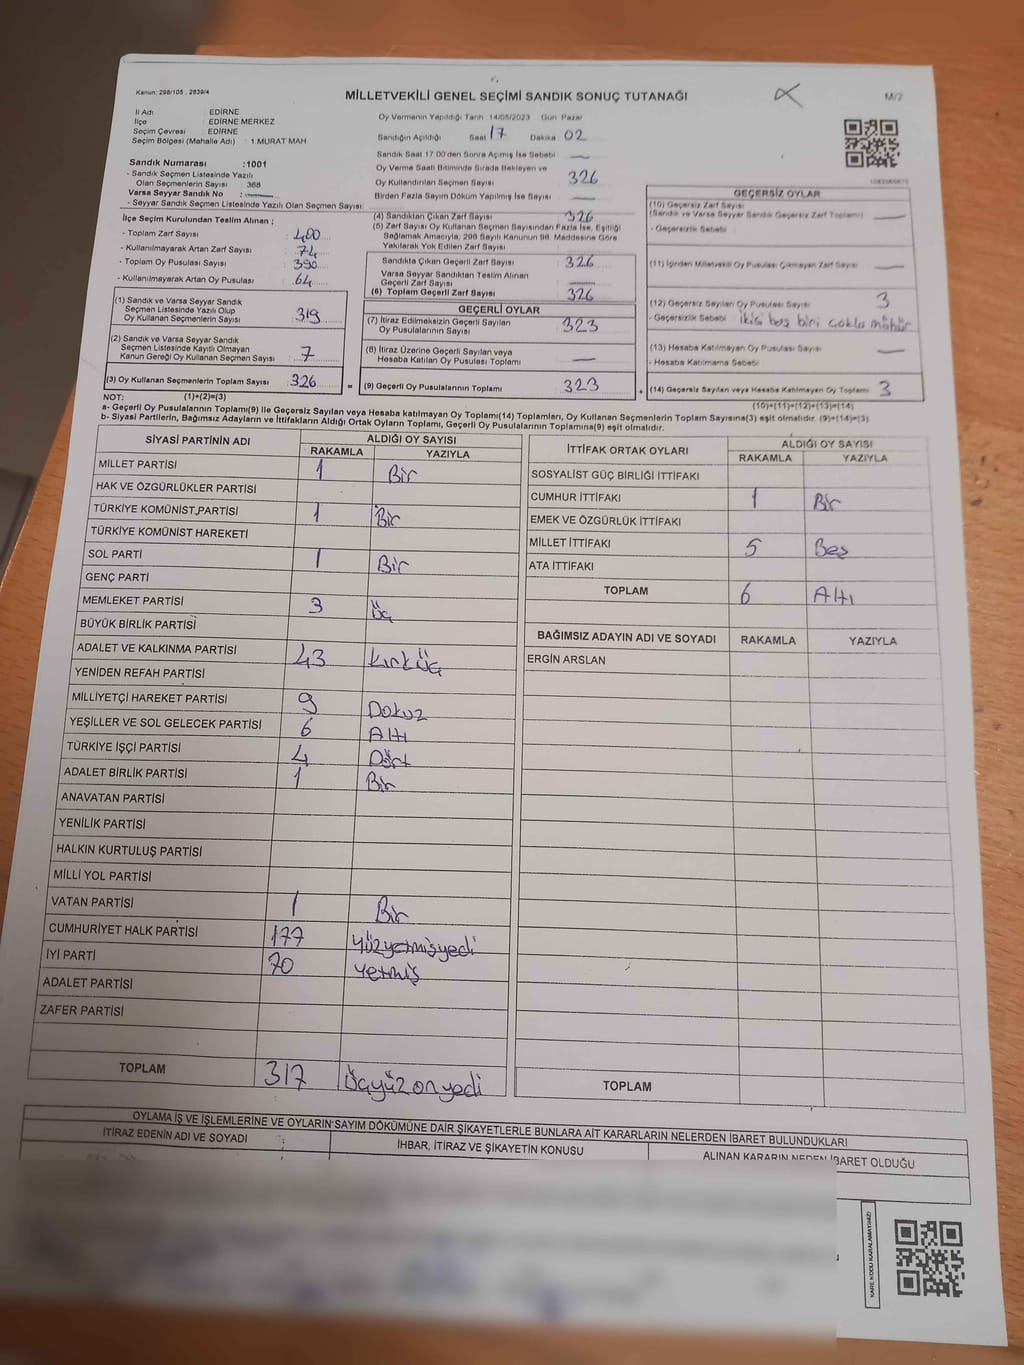 Kanun: 298/105, 2839/4
MİLLETVEKİLİ GENEL SEÇİMİ SANDIK SONUÇ TUTANAĞI
M/2
İl Adı : EDİRNE
İlçe : EDİRNE MERKEZ
Seçim Çevresi : EDİRNE
Seçim Bölgesi (Mahalle Adı) : 1 MURAT MAH.
Sandık Numarası :1001
- Sandık Seçmen Listesinde Yazılı
Olan Seçmenlerin Sayısı : 368
Varsa Seyyar Sandık No :
- Seyyar Sandık Seçmen Listesinde Yazılı Olan Seçmen Sayısı:
İlçe Seçim Kurulundan Teslim Alınan ;
- Toplam Zarf Sayısı : 400
- Kullanılmayarak Artan Zarf Sayısı : 74
- Toplam Oy Pusulası Sayısı : 390
- Kullanılmayarak Artan Oy Pusulası : 64
(1) Sandık ve Varsa Seyyar Sandık
Seçmen Listesinde Yazılı Olup
Oy Kullanan Seçmenlerin Sayısı : 319
(2) Sandık ve Varsa Seyyar Sandık
Seçmen Listesinde Kayıtlı Olmayan
Kanun Gereği Oy Kullanan Seçmen Sayısı : 7
(3) Oy Kullanan Seçmenlerin Toplam Sayısı : 326
Oy Vermenin Yapıldığı Tarih 14/05/2023 Gün Pazar
Sandığın Açıldığı Saat 17 Dakika 02
Sandık Saat 17:00'den Sonra Açılmış İse Sebebi
Oy Verme Saati Bitiminde Sırada Bekleyen ve
Oy Kullandırılan Seçmen Sayısı 326
Birden Fazla Sayım Döküm Yapılmış İse Sayısı
(4) Sandıktan Çıkan Zarf Sayısı 326
(5) Zarf Sayısı Oy Kullanan Seçmen Sayısından Fazla İse, Eşitliği
Sağlamak Amacıyla, 298 Sayılı Kanunun 98. Maddesine Göre
Yakılarak Yok Edilen Zarf Sayısı
Sandıkta Çıkan Geçerli Zarf Sayısı 326
Varsa Seyyar Sandıktan Teslim Alınan
Geçerli Zarf Sayısı
(6) Toplam Geçerli Zarf Sayısı 326
GEÇERLİ OYLAR
(7) İtiraz Edilmeksizin Geçerli Sayılan
Oy Pusulalarının Sayısı : 323
(8) İtiraz Üzerine Geçerli Sayılan veya
Hesaba Katılan Oy Pusulası Toplamı
= (9) Geçerli Oy Pusulalarının Toplamı : 323
GEÇERSİZ OYLAR
(10) Geçersiz Zarf Sayısı
(Sandık ve Varsa Seyyar Sandık Geçersiz Zarf Toplamı)
- Geçersizlik Sebebi
(11) İçinden Milletvekili Oy Pusulası Çıkmayan Zarf Sayısı
(12) Geçersiz Sayılan Oy Pusulası Sayısı 3
- Geçersizlik Sebebi : ikisi boş biri çoklu mühür
(13) Hesaba Katılmayan Oy Pusulası Sayısı
- Hesaba Katılmama Sebebi
+ (14) Geçersiz Sayılan veya Hesaba Katılmayan Oy Toplamı : 3
NOT: (1)+(2)=(3)
(10)+(11)+(12)+(13)=(14)
a- Geçerli Oy Pusulalarının Toplamı(9) ile Geçersiz Sayılan veya Hesaba katılmayan Oy Toplamı(14) Toplamları, Oy Kullanan Seçmenlerin Toplam Sayısına(3) eşit olmalıdır. (9)+(14)=(3)
b- Siyasi Partilerin, Bağımsız Adayların ve İttifakların Aldığı Ortak Oyların Toplamı, Geçerli Oy Pusulalarının Toplamına(9) eşit olmalıdır.
SİYASİ PARTİNİN ADI ALDIĞI OY SAYISI
RAKAMLA YAZIYLA
MİLLET PARTİSİ 1 Bir
HAK VE ÖZGÜRLÜKLER PARTİSİ
TÜRKİYE KOMÜNİST PARTİSİ 1 Bir
TÜRKİYE KOMÜNİST HAREKETİ
SOL PARTİ 1 Bir
GENÇ PARTİ
MEMLEKET PARTİSİ 3 Üç
BÜYÜK BİRLİK PARTİSİ
ADALET VE KALKINMA PARTİSİ 43 Kırküç
YENİDEN REFAH PARTİSİ
MİLLİYETÇİ HAREKET PARTİSİ 9 Dokuz
YEŞİLLER VE SOL GELECEK PARTİSİ 6 Altı
TÜRKİYE İŞÇİ PARTİSİ 4 Dört
ADALET BİRLİK PARTİSİ 1 Bir
ANAVATAN PARTİSİ
YENİLİK PARTİSİ
HALKIN KURTULUŞ PARTİSİ
MİLLİ YOL PARTİSİ
VATAN PARTİSİ 1 Bir
CUMHURİYET HALK PARTİSİ 177 Yüzyetmişyedi
İYİ PARTİ 70 Yetmiş
ADALET PARTİSİ
ZAFER PARTİSİ
TOPLAM 317 Üçyüzonyedi
İTTİFAK ORTAK OYLARI ALDIĞI OY SAYISI
RAKAMLA YAZIYLA
SOSYALİST GÜÇ BİRLİĞİ İTTİFAKI
CUMHUR İTTİFAKI 1 Bir
EMEK VE ÖZGÜRLÜK İTTİFAKI
MİLLET İTTİFAKI 5 Beş
ATA İTTİFAKI
TOPLAM 6 Altı
BAĞIMSIZ ADAYIN ADI VE SOYADI RAKAMLA YAZIYLA
ERGİN ARSLAN
TOPLAM
OYLAMA İŞ VE İŞLEMLERİNE VE OYLARIN SAYIM DÖKÜMÜNE DAİR ŞİKAYETLERLE BUNLARA AİT KARARLARIN NELERDEN İBARET BULUNDUKLARI
İTİRAZ EDENİN ADI VE SOYADI İHBAR, İTİRAZ VE ŞİKAYETİN KONUSU ALINAN KARARIN NEDEN İBARET OLDUĞU
KARE KODU KARALAMAYINIZ!